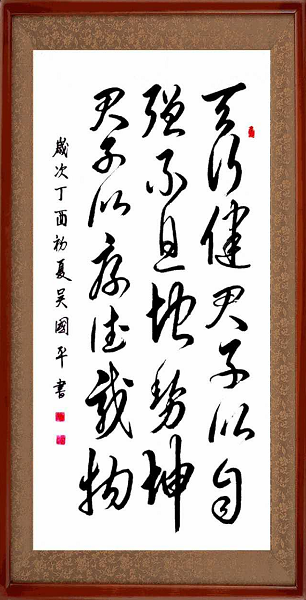 天行健君子以自
强不息地势坤
君子以厚德载物
歲次丁酉初夏吳國平書